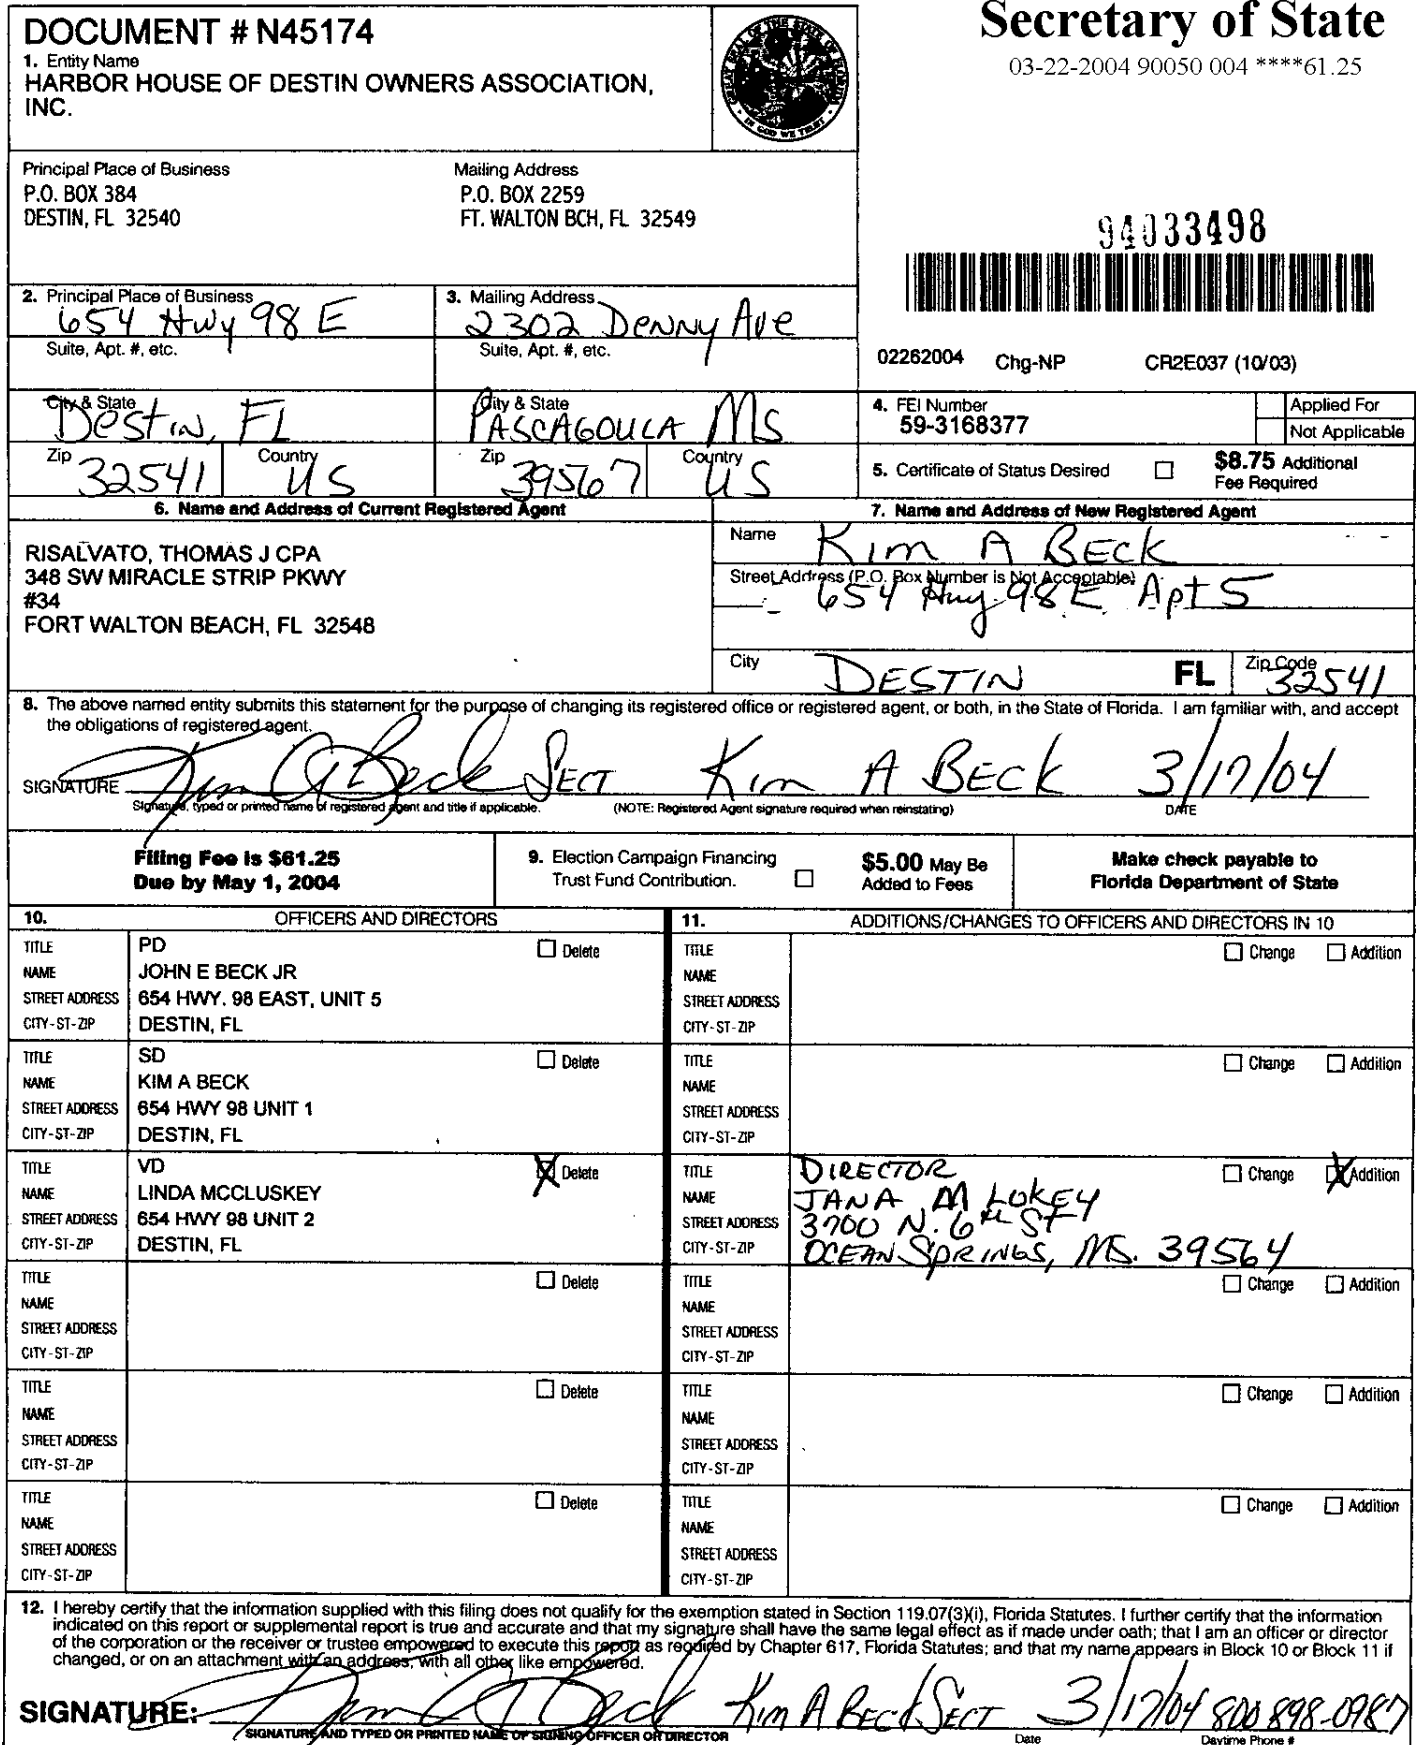 DOCUMENT # N45174
1. Entity Name
HARBOR HOUSE OF DESTIN OWNERS ASSOCIATION,
INC.
Secretary of State
03-22-2004 90050 004 ****61.25
Principal Place of Business
P.O. BOX 384
DESTIN, FL 32540
Mailing Address
P.O. BOX 2259
FT. WALTON BCH, FL 32549
94033498
2. Principal Place of Business
654 Hwy 98 E
3. Mailing Address
2302 Denny Ave
Suite, Apt. #, etc.
Suite, Apt. #, etc.
02262004 Chg-NP CR2E037 (10/03)
City & State
Destin, FL
City & State
PASCAGOULA MS
Zip
32541
Country
US
Zip
39567
Country
US
4. FEI Number
59-3168377
Applied For
Not Applicable
5. Certificate of Status Desired
$8.75 Additional
Fee Required
6. Name and Address of Current Registered Agent
RISALVATO, THOMAS J CPA
348 SW MIRACLE STRIP PKWY
#34
FORT WALTON BEACH, FL 32548
7. Name and Address of New Registered Agent
Name
Kim A BECK
Street Address (P.O. Box Number is Not Acceptable)
654 Hwy 98 E Apt 5
City
DESTIN
FL
Zip Code
32541
8. The above named entity submits this statement for the purpose of changing its registered office or registered agent, or both, in the State of Florida. I am familiar with, and accept
the obligations of registered agent.
SIGNATURE Kim A Beck SECT Kim A BECK 3/17/04
Signature, typed or printed name of registered agent and title if applicable. (NOTE: Registered Agent signature required when reinstating) DATE
Filing Fee is $61.25
Due by May 1, 2004
9. Election Campaign Financing
Trust Fund Contribution.
$5.00 May Be
Added to Fees
Make check payable to
Florida Department of State
10. OFFICERS AND DIRECTORS
11. ADDITIONS/CHANGES TO OFFICERS AND DIRECTORS IN 10
TITLE PD Delete
NAME JOHN E BECK JR
STREET ADDRESS 654 HWY. 98 EAST, UNIT 5
CITY-ST-ZIP DESTIN, FL
TITLE Change Addition
NAME
STREET ADDRESS
CITY-ST-ZIP
TITLE SD Delete
NAME KIM A BECK
STREET ADDRESS 654 HWY 98 UNIT 1
CITY-ST-ZIP DESTIN, FL
TITLE Change Addition
NAME
STREET ADDRESS
CITY-ST-ZIP
TITLE VD X Delete
NAME LINDA MCCLUSKEY
STREET ADDRESS 654 HWY 98 UNIT 2
CITY-ST-ZIP DESTIN, FL
TITLE DIRECTOR Change X Addition
NAME JANA M LOKEY
STREET ADDRESS 3700 N. 6th ST
CITY-ST-ZIP OCEAN SPRINGS, MS. 39564
TITLE Delete
NAME
STREET ADDRESS
CITY-ST-ZIP
TITLE Change Addition
NAME
STREET ADDRESS
CITY-ST-ZIP
TITLE Delete
NAME
STREET ADDRESS
CITY-ST-ZIP
TITLE Change Addition
NAME
STREET ADDRESS
CITY-ST-ZIP
TITLE Delete
NAME
STREET ADDRESS
CITY-ST-ZIP
TITLE Change Addition
NAME
STREET ADDRESS
CITY-ST-ZIP
12. I hereby certify that the information supplied with this filing does not qualify for the exemption stated in Section 119.07(3)(i), Florida Statutes. I further certify that the information
indicated on this report or supplemental report is true and accurate and that my signature shall have the same legal effect as if made under oath; that I am an officer or director
of the corporation or the receiver or trustee empowered to execute this report as required by Chapter 617, Florida Statutes; and that my name appears in Block 10 or Block 11 if
changed, or on an attachment with an address, with all other like empowered.
SIGNATURE: Kim A Beck Kim A Beck SECT 3/17/04 800 898-0987
SIGNATURE AND TYPED OR PRINTED NAME OF SIGNING OFFICER OR DIRECTOR Date Daytime Phone #